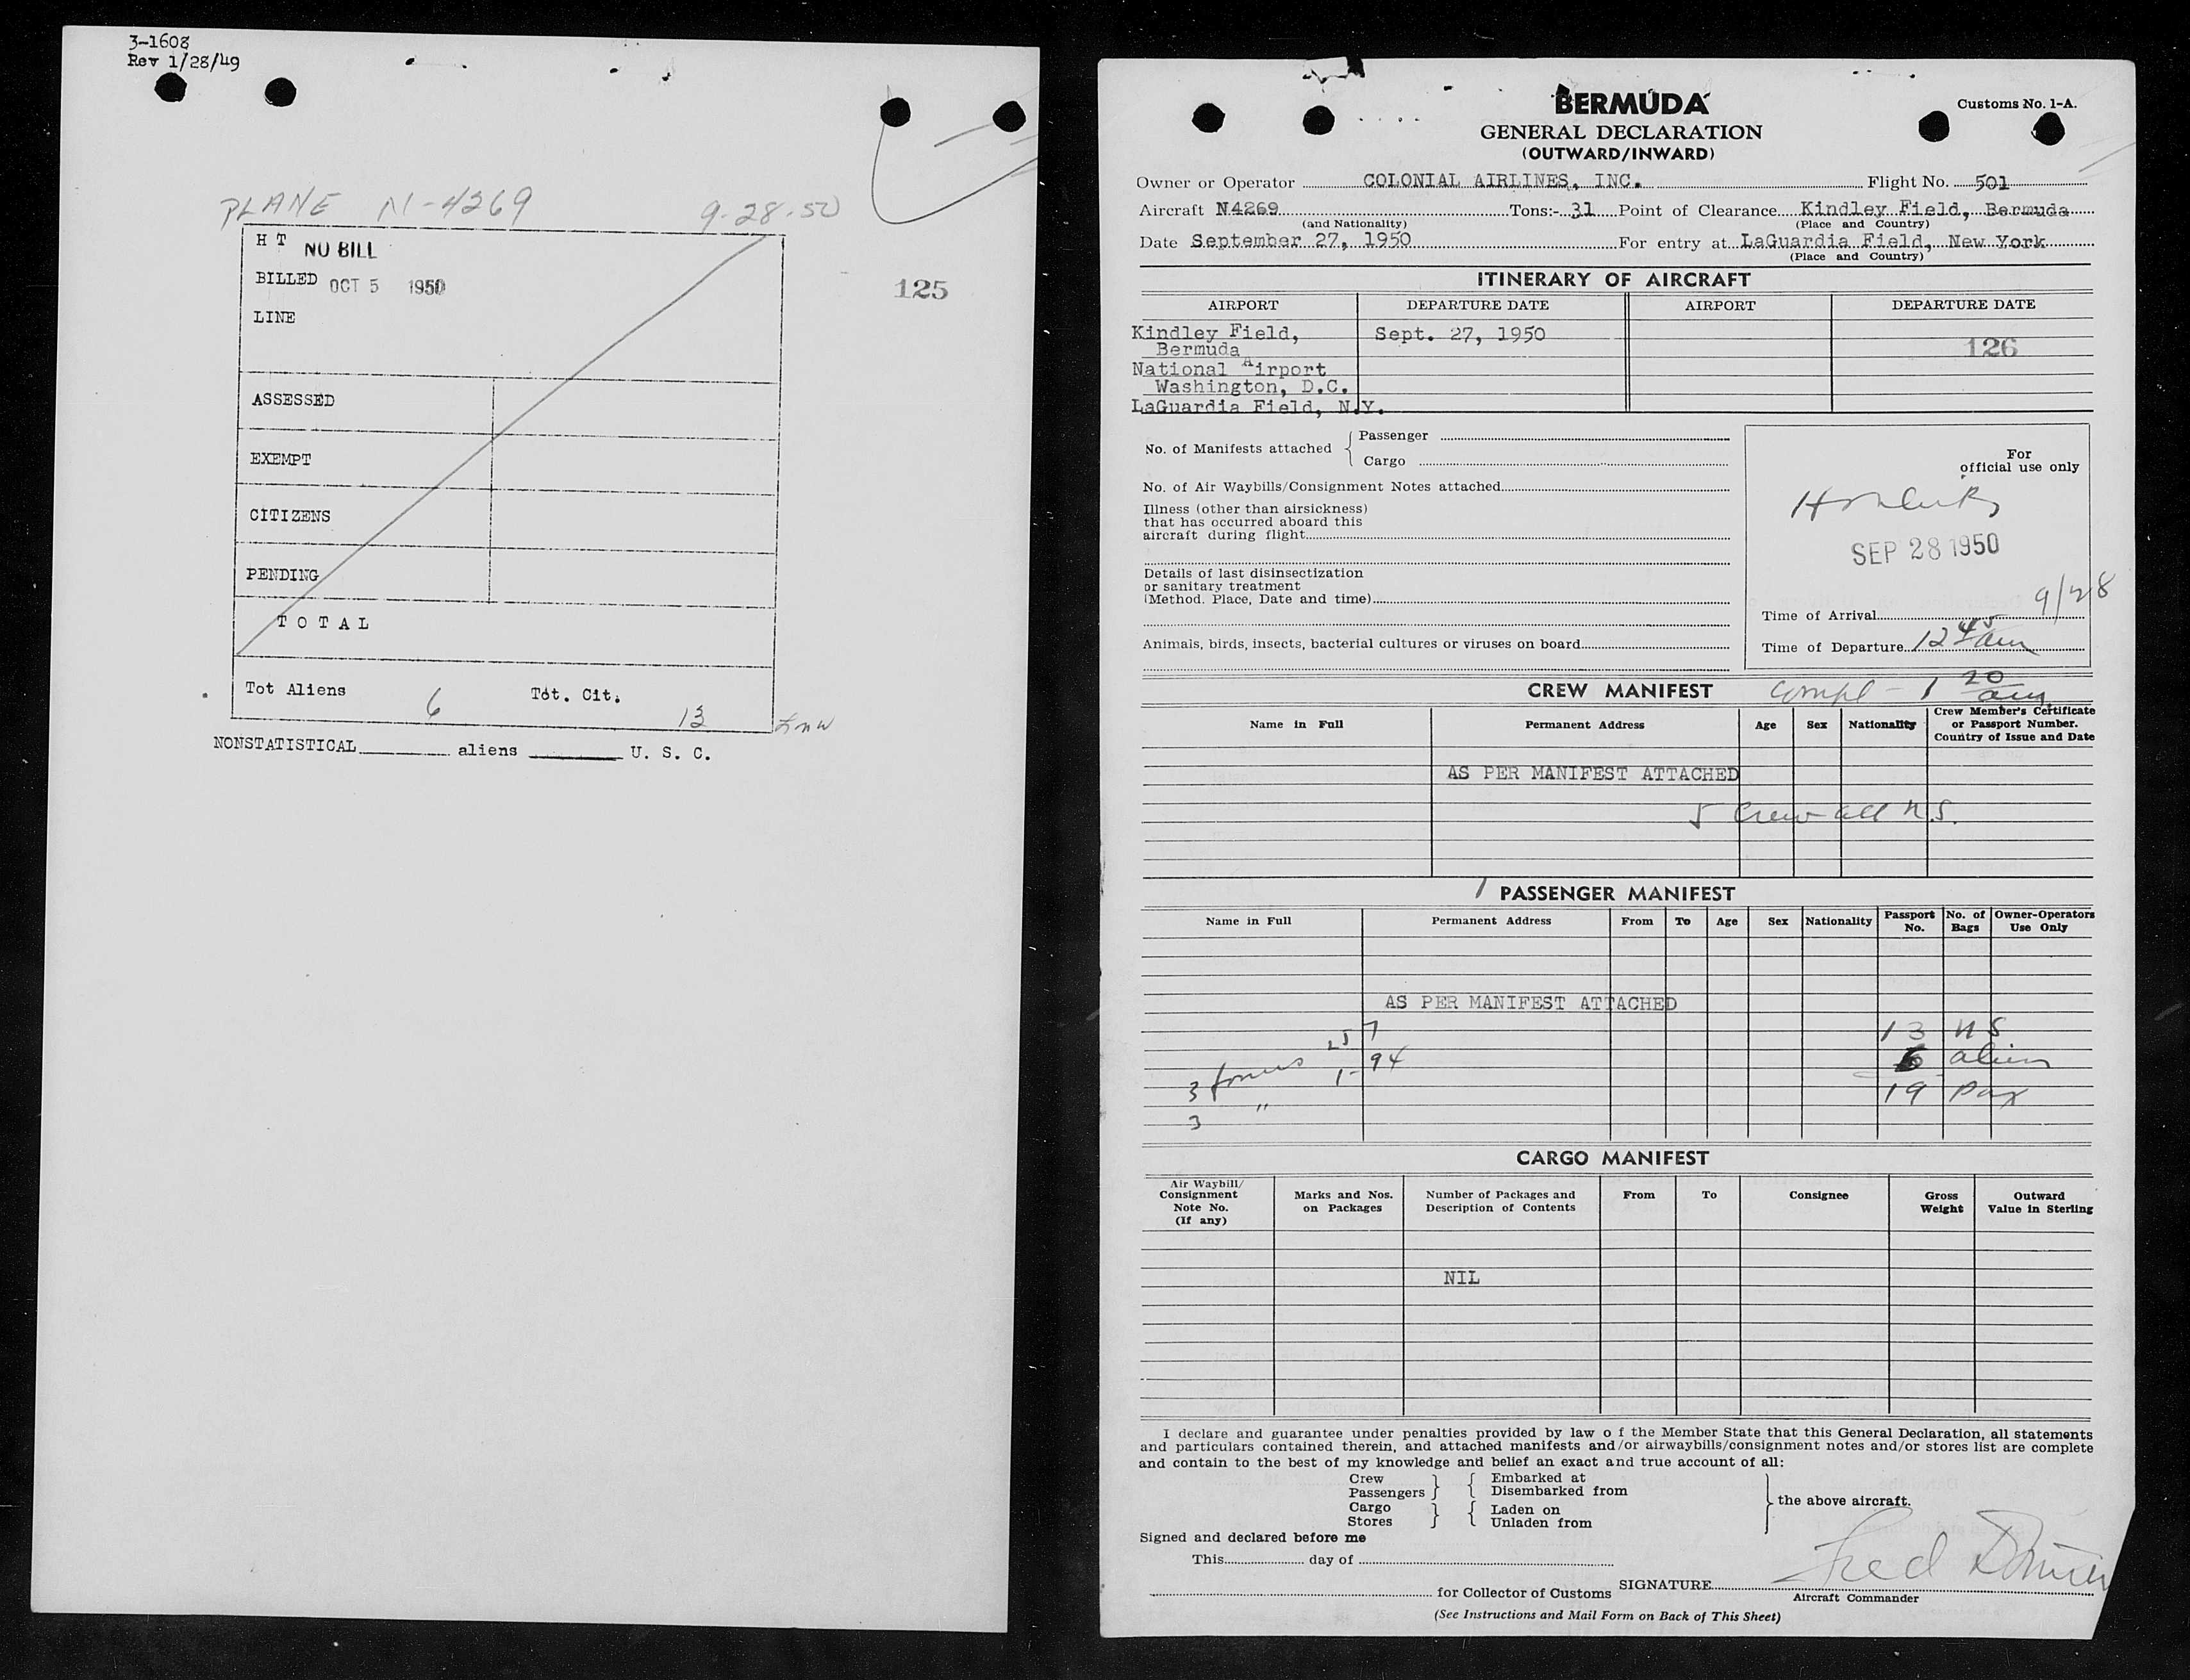 3-1608
Rev 1/28/49
PLANE N-4269 9-28-50
H T NO BILL
BILLED OCT 5 1950
125
LINE
ASSESSED
EXEMPT
CITIZENS
PENDING
T O T A L
Tot Aliens 6 Tot. Cit. 13
NONSTATISTICAL aliens U. S. C.
BERMUDA
Customs No. 1-A.
GENERAL DECLARATION
(OUTWARD/INWARD)
Owner or Operator COLONIAL AIRLINES, INC. Flight No. 501
Aircraft N4269 Tons:- 31 Point of Clearance Kindley Field, Bermuda
(and Nationality) (Place and Country)
Date September 27, 1950 For entry at LaGuardia Field, New York
(Place and Country)
ITINERARY OF AIRCRAFT
AIRPORT DEPARTURE DATE AIRPORT DEPARTURE DATE
Kindley Field, Sept. 27, 1950
Bermuda 126
National Airport
Washington, D.C.
LaGuardia Field, N.Y.
No. of Manifests attached Passenger
Cargo
For
official use only
No. of Air Waybills/Consignment Notes attached
Illness (other than airsickness)
that has occurred aboard this
aircraft during flight
SEP 28 1950
Details of last disinsectization
or sanitary treatment
(Method. Place, Date and time)
9/28
Time of Arrival
Animals, birds, insects, bacterial cultures or viruses on board
Time of Departure 12 45 am
CREW MANIFEST Compl - 1 20 am
Name in Full Permanent Address Age Sex Nationality Crew Member's Certificate
or Passport Number.
Country of Issue and Date
AS PER MANIFEST ATTACHED
5 Crew all U.S.
PASSENGER MANIFEST
Name in Full Permanent Address From To Age Sex Nationality Passport No. No. of Bags Owner-Operators Use Only
AS PER MANIFEST ATTACHED
13 US
3 forms 1-94 6 alien
3 " 19 Pax
CARGO MANIFEST
Air Waybill/
Consignment
Note No.
(If any)
Marks and Nos.
on Packages
Number of Packages and
Description of Contents
From To Consignee Gross
Weight
Outward
Value in Sterling
NIL
I declare and guarantee under penalties provided by law o f the Member State that this General Declaration, all statements
and particulars contained therein, and attached manifests and/or airwaybills/consignment notes and/or stores list are complete
and contain to the best of my knowledge and belief an exact and true account of all:
Crew Embarked at
Passengers Disembarked from
the above aircraft.
Cargo Laden on
Stores Unladen from
Signed and declared before me
This day of
for Collector of Customs SIGNATURE Fred
Aircraft Commander
(See Instructions and Mail Form on Back of This Sheet)